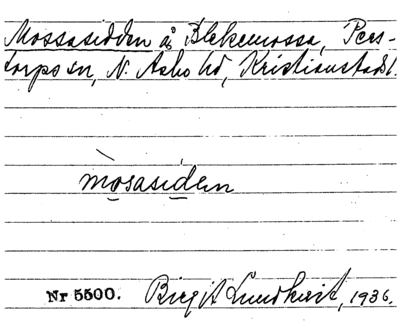 Mossasidden å Blekemossa, Pers-
torps sn, N. Åsbo hd, Kristianstads l.
mòsasiden
Nr 5500. Birgit Lundkvist, 1936.